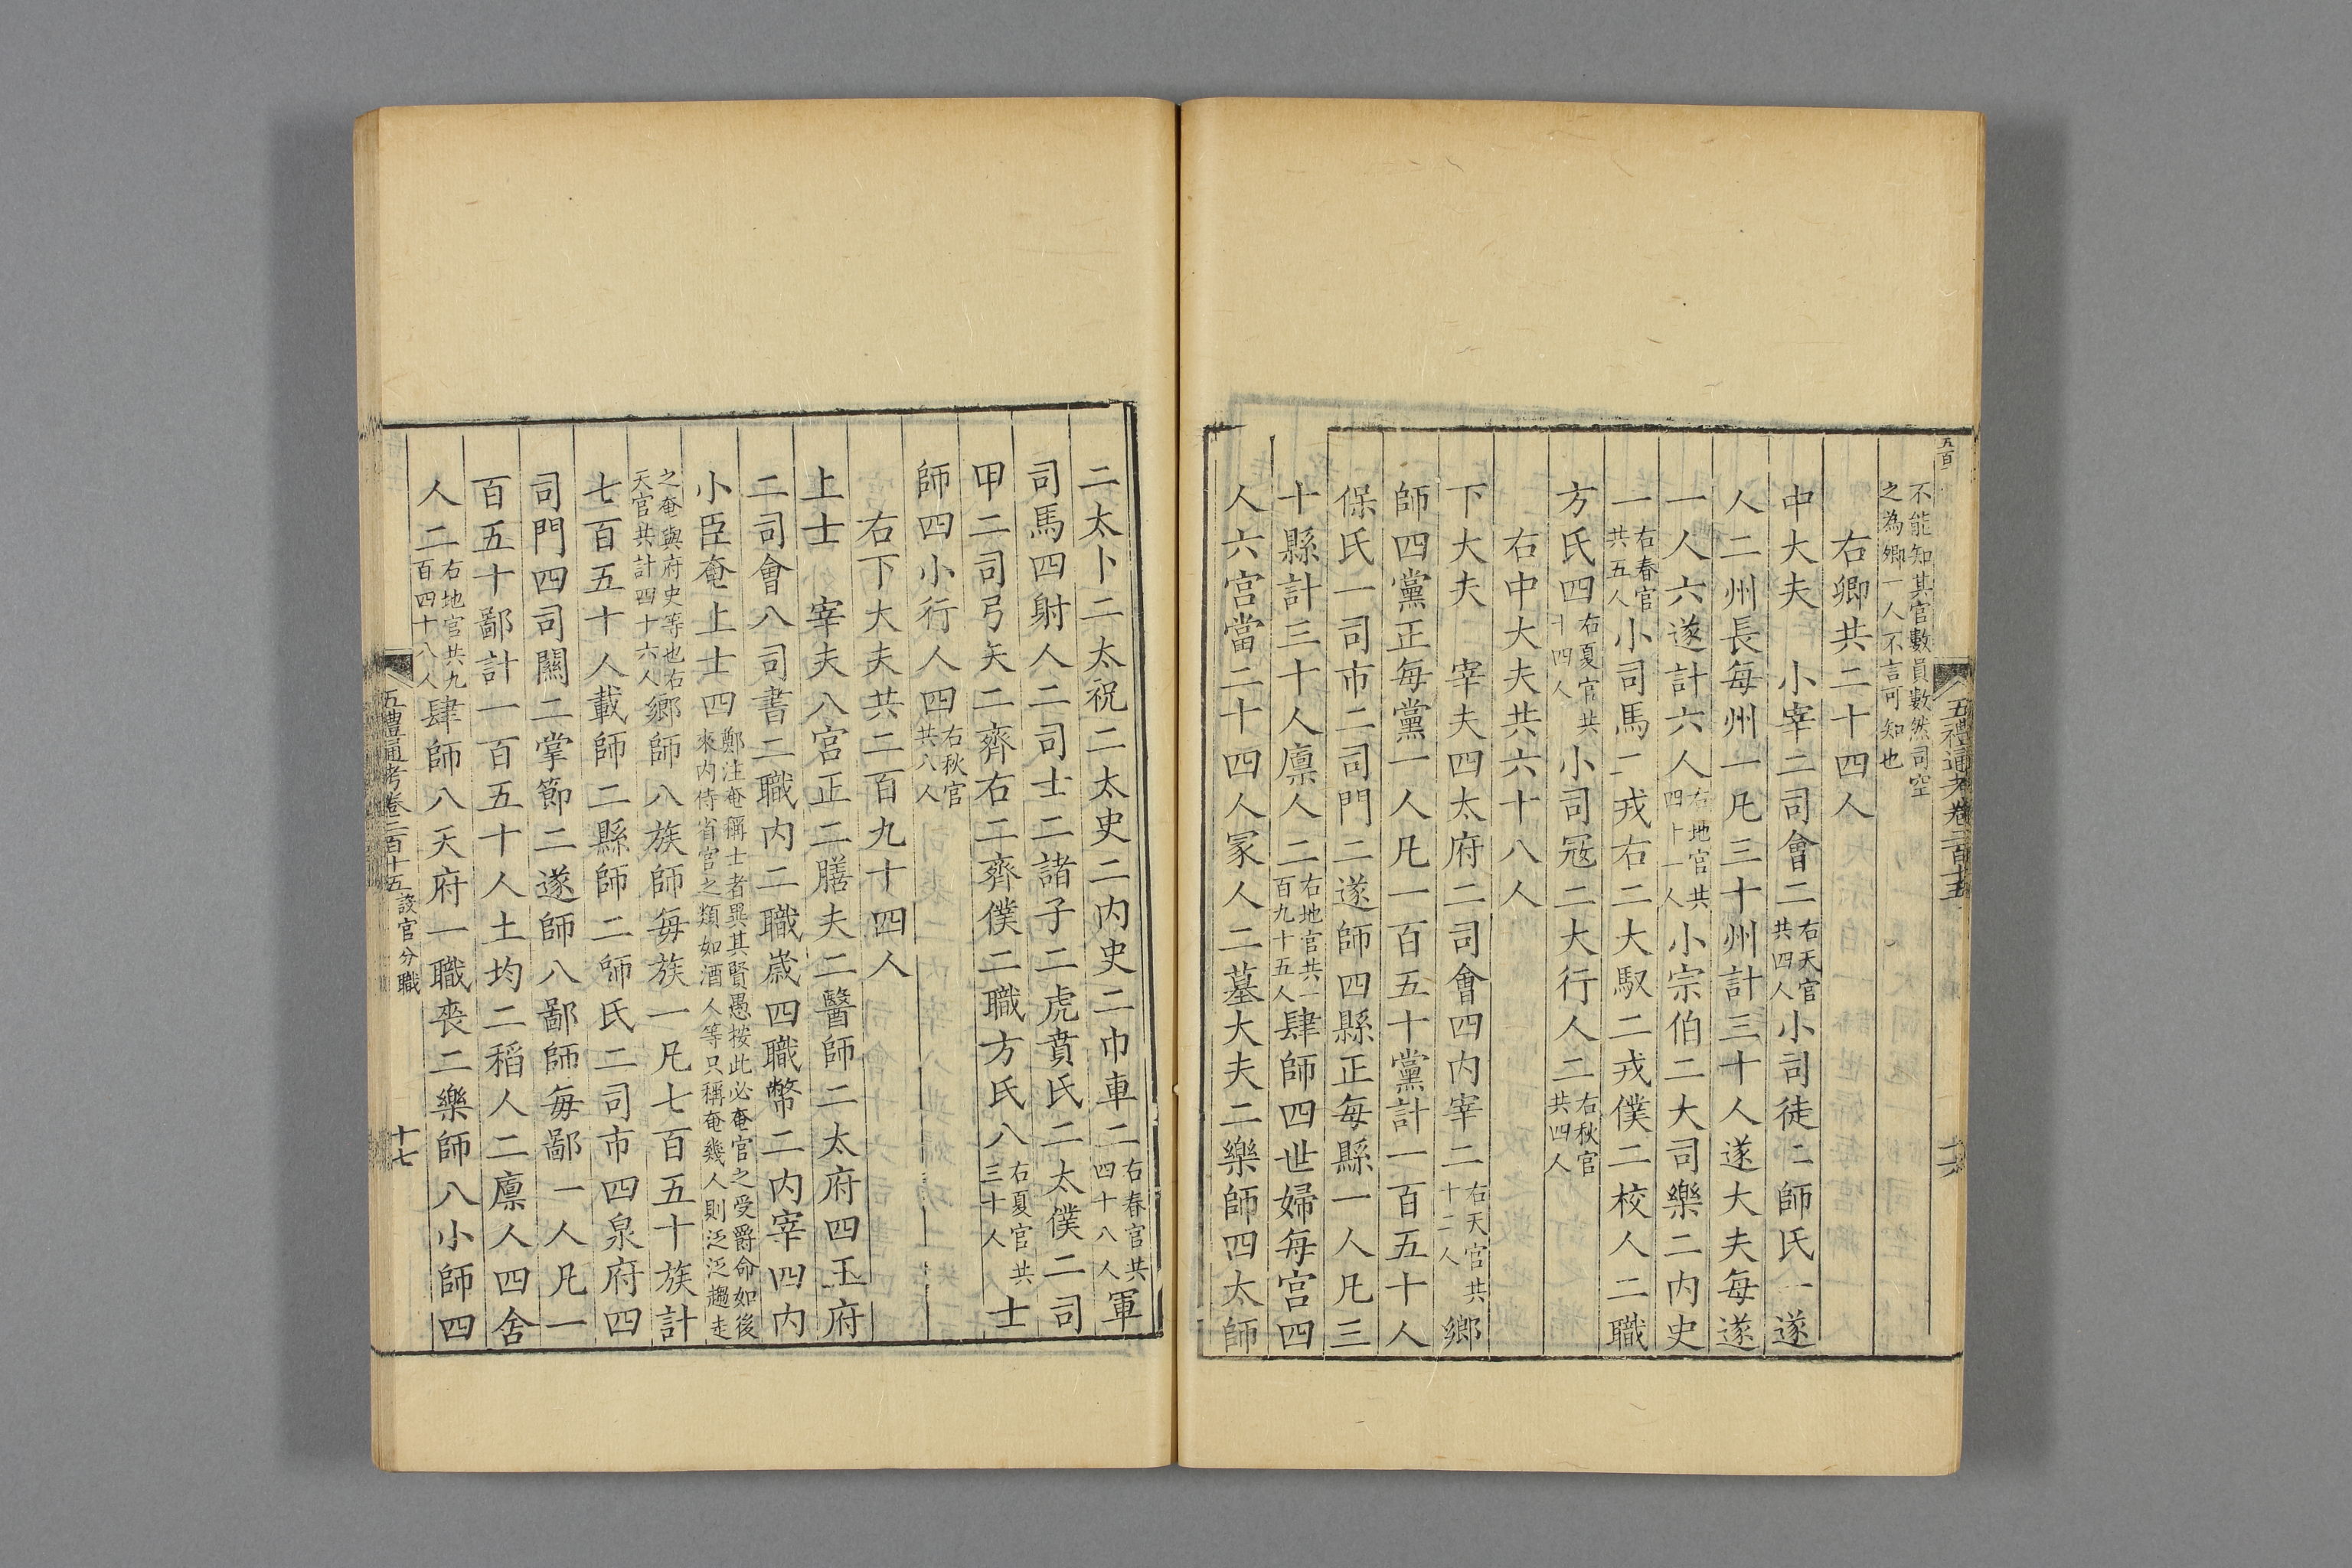 五百
五禮通考卷二百十五
十六
不能知其官數員數然司空
之為卿一人不言可知也
右卿共二十四人
中大夫　小宰二司會二右天官共四人小司徒二師氏一遂
人二州長每州一凡三十州計三十人遂大夫每遂
一人六遂計六人右地官共四十一人小宗伯二大司樂二內史
一右春官共五人小司馬二戎右二大馭二戎僕二校人二職
方氏四右夏官共十四人小司寇二大行人二右秋官共四人
右中大夫共六十八人
下大夫　宰夫四太府二司會四內宰二右天官共十二人鄉
師四黨正每黨一人凡一百五十黨計一百五十人
保氏一司市二司門二遂師四縣正每縣一人凡三
十縣計三十人廩人二右地官共一百九十五人肆師四世婦每宮四
人六宮當二十四人冢人二墓大夫二樂師四太師
二太卜二太祝二太史二內史二巾車二右春官共四十八人軍
司馬四射人二司士二諸子二虎賁氏二太僕二司
甲二司弓矢二齊右二齊僕二職方氏八右夏官共三十人士
師四小行人四右秋官共八人
右下大夫共二百九十四人
上士　宰夫八宮正二膳夫二醫師二太府四玉府
二司會八司書二職內二職歲四職幣二內宰四內
小臣奄上士四鄭注奄稱士者異其賢愚按此必奄官之受爵命如後來內侍省官之類如酒人等只稱奄幾人則泛泛趨走
之奄與府史等也右天官共計四十六人鄉師八族師每族一凡七百五十族計
七百五十人載師二縣師二師氏二司市四泉府四
司門四司關二掌節二遂師八鄙師每鄙一人凡一
百五十鄙計一百五十人土均二稻人二廩人四舍
人二右地官共九百四十八人肆師八天府一職喪二樂師八小師四
五禮通考卷二百十五　設官分職
十七